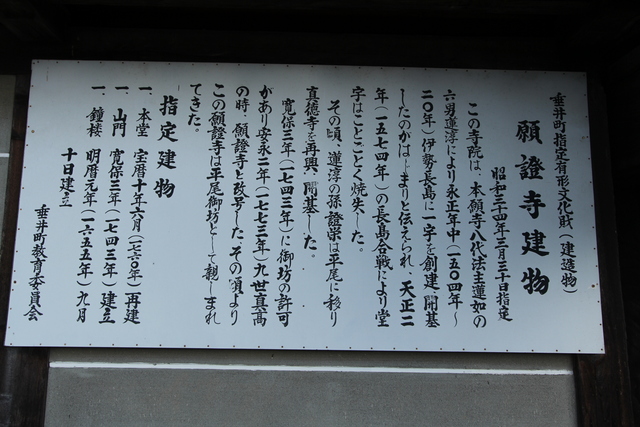 垂井町指定有形文化財（建造物）
願證寺建物
昭和三十四年三月三十日指定
この寺院は、本願寺八代法主蓮如の
六男蓮淳により永正年中（一五〇四年～
二〇年）伊勢長島に一字を創建、開基
したのがはじまりと伝えられ、天正二
年（一五七四年）の長島合戦により堂
字はことごとく焼失した。
その頃、蓮淳の孫證栄は平尾に移り
真徳寺を再興、開基した。
寛保三年（一七四三年）に御坊の許可
があり安永二年（一七七三年）九世真高
の時、願證寺と改号した。その頃より
この願證寺は平尾御坊として親しまれ
てきた。
指定建物
一、本堂　宝暦十年六月（一七六〇年）再建
一、山門　寛保三年（一七四三年）建立
一、鐘楼　明暦元年（一六五五年）九月
十日建立
垂井町教育委員会